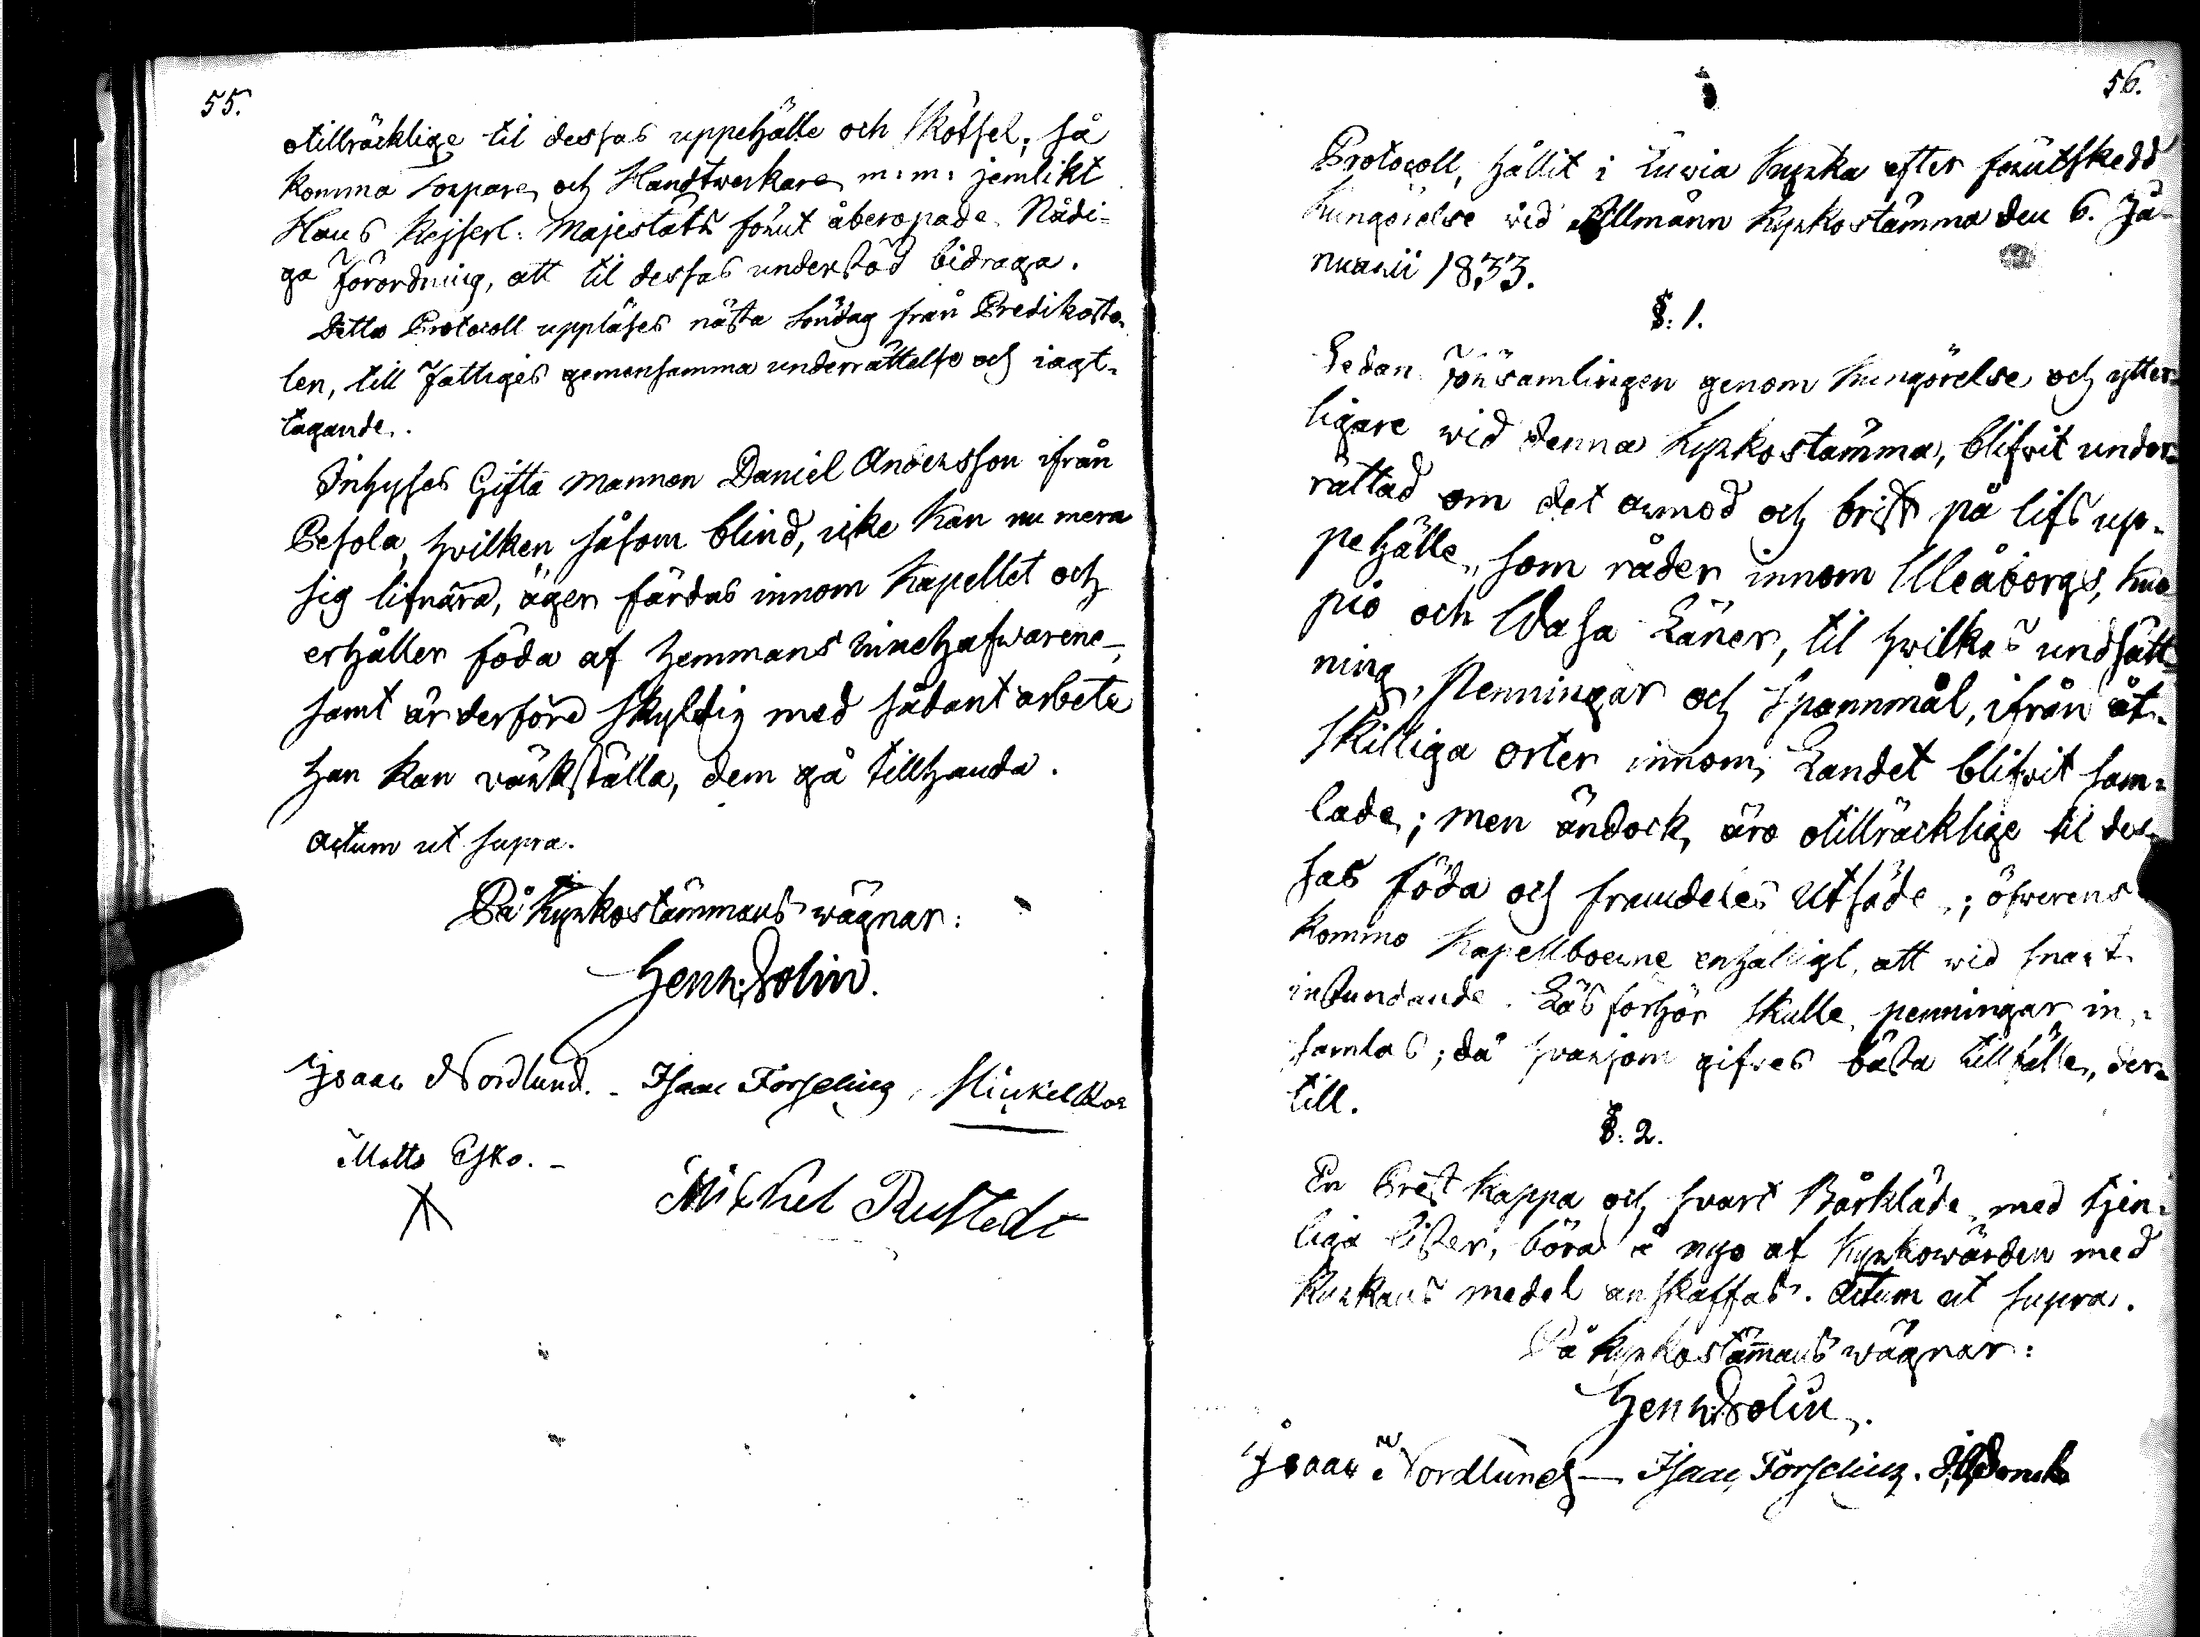 55.
otillräcklige til dessas uppehälle och Skötsel; så
komma Torpare och Handtwerkare m: m: jemlikt
Hans Kejserl: Majestäts förut åberopade Nådi-
ga Förordning, att til dessas understöd bidraga.
Detta Protocoll uppläses nästa Söndag från Prediksto-
len, till Fattiges gemensamma underrättelse och iagt-
tagande.
Inhyses Gifta Mannen Daniel Andersson ifrån
Pesola, hvilken såsom blind, icke kan nu mera
sig lifnära, äger färdas innom Kapellet och
erhåller föda af hemmans innehafwarene,
samt är derföre skyldig med sådant arbete
han kan värkställa, dem gå tillhanda.
Actum ut supra.
På Kyrkostämmans wägnar:
Henr: Rolin.
Isaac Nordlund. - Isaac Forselius, Michel
Matts Esko. -
Mickel Rustedt
56.
Protocoll, hållit i Luvia Kyrka efter förutskedd
Kungörelse wid Allmänn Kyrkostämma den 6. Ja-
nuarii 1833.
§. 1.
Sedan Församlingen genom Kungörelse och ytter-
ligare wid denna Kyrkostämma, blifvit under-
rättad om det armod och brist på lifs up-
pehälle, som råder innom Uleåborgs, Kuo
pio och Wasa Läner, til hvilkas undsätt
ning, Penningar och Spannmål, ifrån åt-
skilliga orter innom Landet blifvit sam-
lade; men ändock äro otillräcklige til des-
sas föda och framdeles utsäde; öfverens
kommo Kapellboerne enhälligt, att wid snart
instundande Läsförhör skulle penningar in-
samlas; då hvarjom gifves bästa tillfälle der-
till.
§. 2.
En Prest kappa och svart Bårkläde med tjen-
liga lister, böra å nyo af Kyrkowärden med
Kyrkans medel anskaffas. Actum ut supra.
På Kyrkostämmans wägnar:
Henr: Rolin.
Isaac Nordlund - Isaac Forselius.